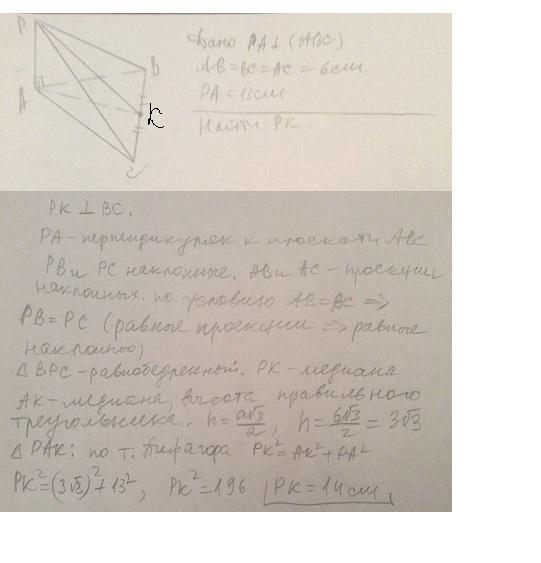 P
Дано PA⊥(ABC)
B
AB=BC=AC=6см
A
PA=13см
K
Найти PK.
C
PK⊥BC.
PA-перпендикуляр к плоскости ABC
PB и PC наклонные. AB и AC-проекции
наклонных. по условию AB=AC =>
PB=PC (равные проекции => равные
наклонные)
△BPC-равнобедренный. PK-медиана
AK-медиана, высота правильного
треугольника. h=a√3/2, h=6√3/2=3√3
△PAK: по т. Пифагора PK²=AK²+PA²
PK²=(3√3)²+13², PK²=196 PK=14см